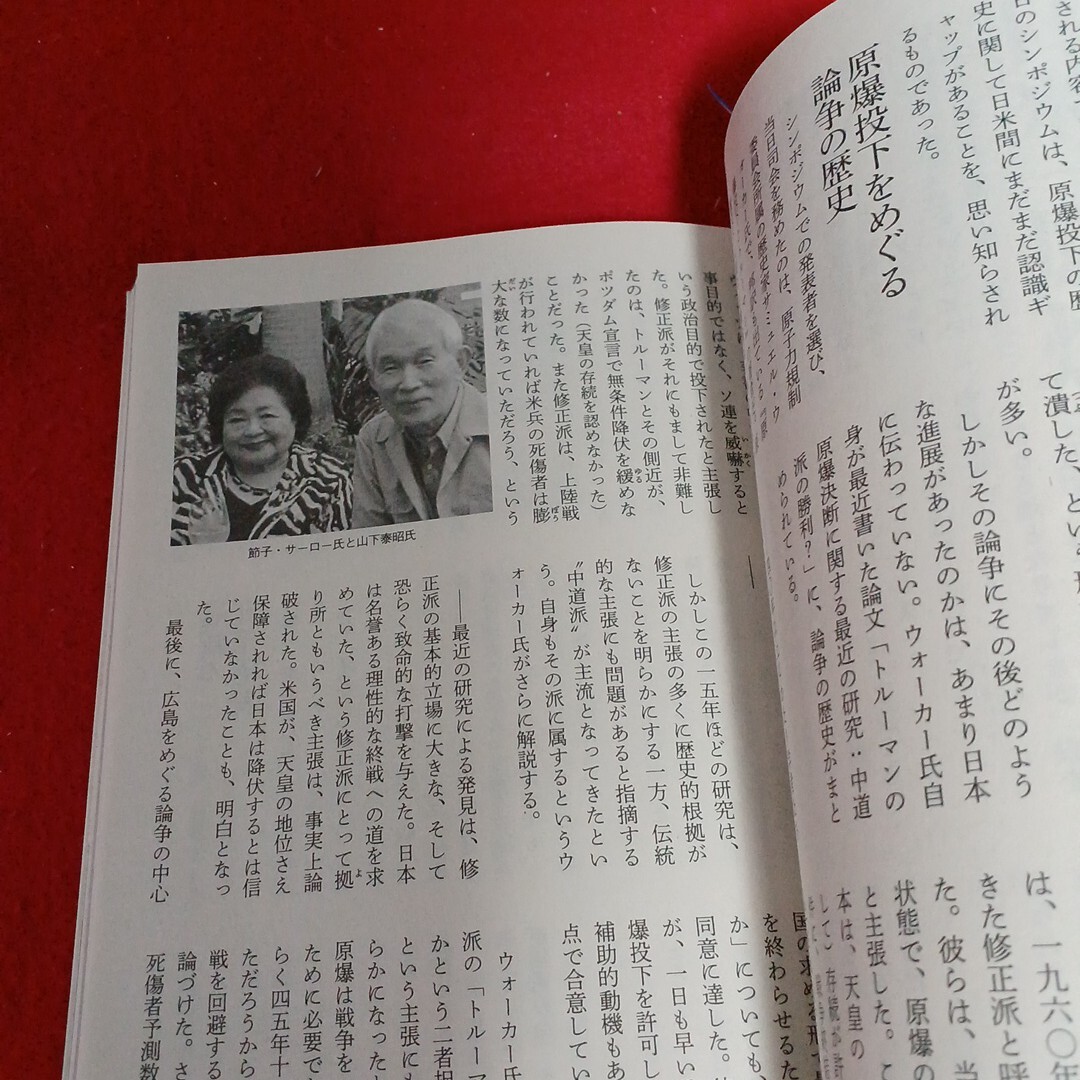 される内容で
日のシンポジウムは、原爆投下の歴
史に関して日米間にまだまだ認識ギ
ャップがあることを、思い知らされ
るものであった。
原爆投下をめぐる
論争の歴史
シンポジウムでの発表者を選び、
当日司会を務めたのは、原子力規制
委員会所属の歴史家サミュエル・ウ
て潰した、とい
が多い。
しかしその論争にその後どのよう
な進展があったのかは、あまり日本
に伝わっていない。ウォーカー氏自
身が最近書いた論文「トルーマンの
原爆決断に関する最近の研究：中道
派の勝利？」に、論争の歴史がまと
められている。
は、一九六〇年
きた修正派と呼
た。彼らは、当
状態で、原爆の
と主張した。こ
本は、天皇の
して）存続が許
事目的ではなく、ソ連を威嚇すると
いう政治目的で投下されたと主張し
た。修正派がそれにもまして非難し
たのは、トルーマンとその側近が、
ポツダム宣言で無条件降伏を緩めな
かった（天皇の存続を認めなかった）
ことだった。また修正派は、上陸戦
が行われていれば米兵の死傷者は膨
大な数になっていただろう、という
節子・サーロー氏と山下泰昭氏
しかしこの一五年ほどの研究は、
修正派の主張の多くに歴史的根拠が
ないことを明らかにする一方、伝統
的な主張にも問題があると指摘する
〝中道派〟が主流となってきたとい
う。自身もその派に属するというウ
ォーカー氏がさらに解説する。
――最近の研究による発見は、修
正派の基本的立場に大きな、そして
恐らく致命的な打撃を与えた。日本
は名誉ある理性的な終戦への道を求
めていた、という修正派にとって拠
り所ともいうべき主張は、事実上論
破された。米国が、天皇の地位さえ
保障されれば日本は降伏するとは信
じていなかったことも、明白となっ
た。
最後に、広島をめぐる論争の中心
国の求める形で
を終わらせるた
か」についても、
同意に達した。
が、一日も早い
爆投下を許可し
補助的動機もあ
点で合意してい
ウォーカー氏
派の「トルーマ
かという二者択
という主張にも
らかになった
原爆は戦争を
ために必要で
らく四五年十
ただろうから
戦を回避する
論づけた。さ
死傷者予測数